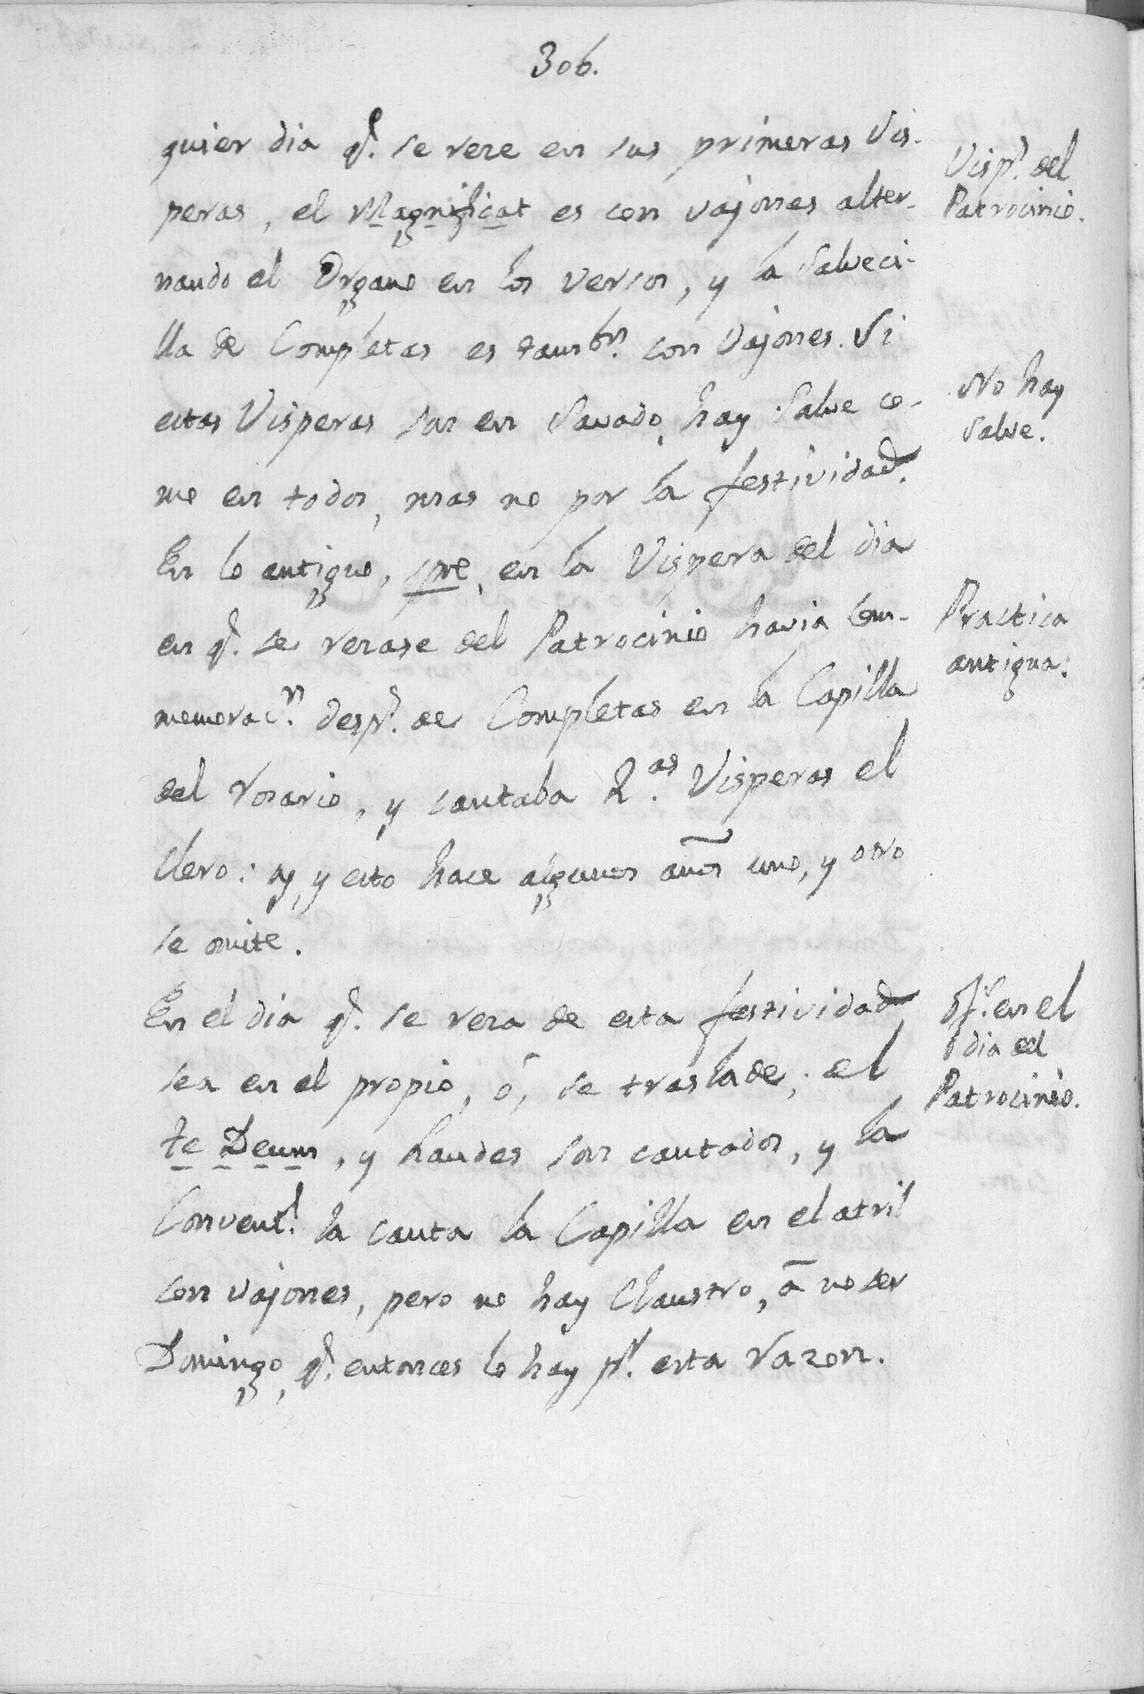 306.
quier dia q.e se reze en sus primeras Vis-
peras, el Magnificat es con vajones alter-
nando el Organo en los versos, y la Salveci-
lla de Completas es tambn. con Vajones. Si
estas Visperas son en Savado, hay Salve co-
mo en todos, mas no por la festividad.
En lo antiguo, spre, en la Vispera del dia
en q.e se rezase del Patrocinio havia con-
memoracn. desps. de Completas en la Capilla
del Rosario, y cantaba 2.as Visperas el
Clero: y esto hace algunos años uno, y otro
se omite.
En el dia q.e se reza de esta festividad
sea en el propio, ó, se traslade, el
te Deum, y Laudes son cantados, y la
Convent.l la canta la Capilla en el atril
con vajones, pero no hay Claustro, a no ser
Domingo, q.e entonces lo hay pr. esta razon.
Visps. del
Patrocinio.
No hay
Salve.
Practica
antigua.
en el
dia del
Patrocinio.